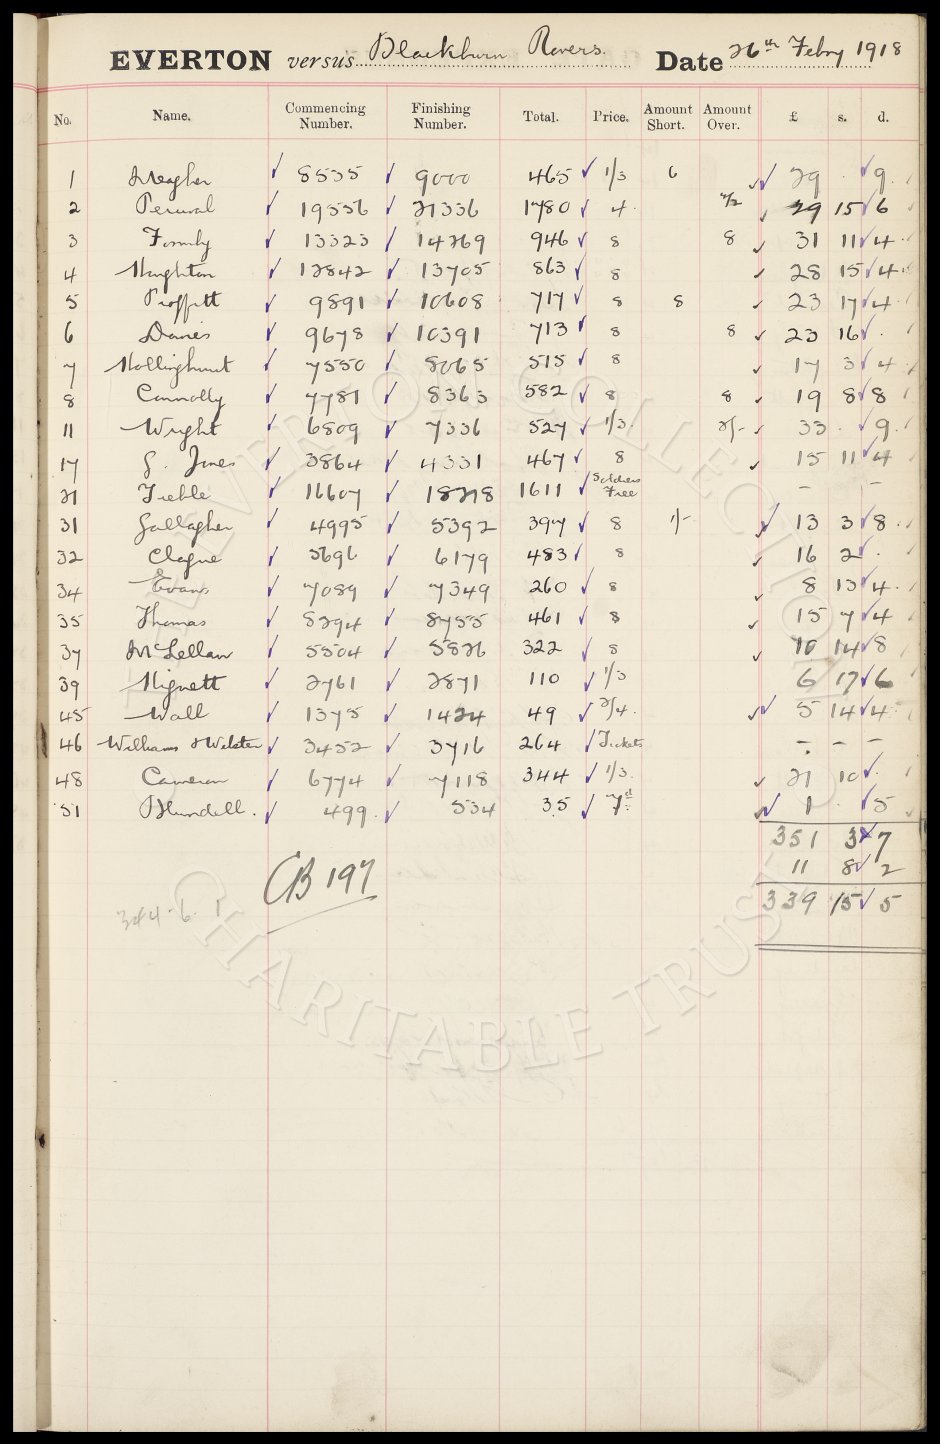 EVERTON versus Blackburn Rovers. Date 26th Febry 1918
No. Name. Commencing Number. Finishing Number. Total. Price. Amount Short. Amount Over. £ s. d.
1 Meagher 8535 9000 465 1/3 6 29 . 9
2 Percival 19556 21336 1780 4 7/2 29 15 6
3 Formby 13323 14269 946 8 8 31 11 4
4 Houghton 12842 13705 863 8 28 15 4
5 Proffitt 9891 10608 717 8 8 23 17 4
6 Davies 9678 10391 713 8 8 23 16 .
7 Hollinghurst 7550 8065 515 8 17 3 4
8 Connolly 7781 8363 582 8 8 19 8 8
11 Wright 6809 7336 527 1/3 2/- 33 . 9
17 G. Jones 3864 4331 467 8 15 11 4
21 Treble 16607 18218 1611 Soldiers Free - -
31 Gallagher 4995 5392 397 8 1/- 13 3 8
32 Clague 5696 6179 483 8 16 2 .
34 Evans 7089 7349 260 8 8 13 4
35 Thomas 8294 8755 461 8 15 7 4
37 McLellan 5504 5826 322 8 10 14 8
39 Mignett 2761 2871 110 1/3 6 17 6
45 Wall 1375 1424 49 2/4 5 14 4
46 Williams & Webster 3452 3716 264 Tickets - - -
48 Cameron 6774 7118 344 1/3 21 10 .
51 Blundell. 499 534 35 7d 1 . 5
351 3 7
11 8 2
339 15 5
CB 197
EVERTON COLLECTION
CHARITABLE TRUST